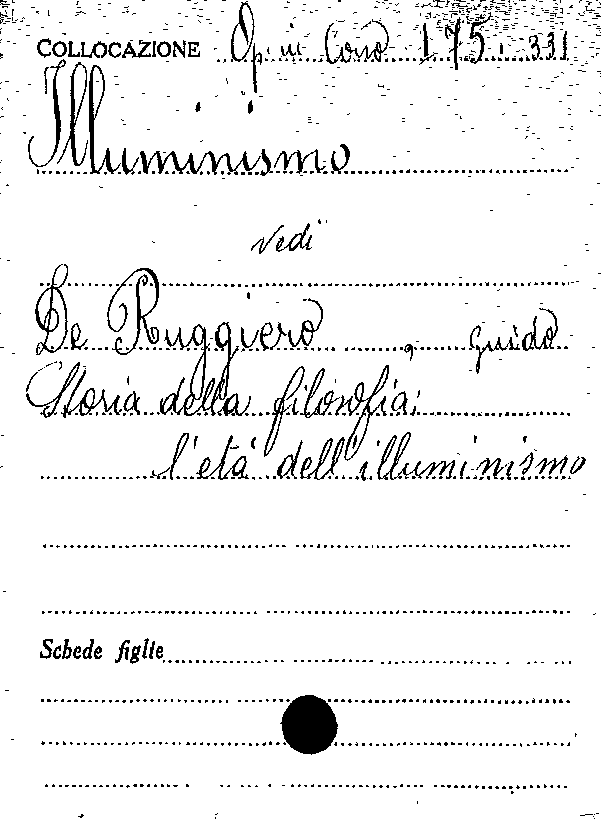 COLLOCAZIONE Op. in Corso 175. 331
Illuminismo
vedi
De Ruggiero, guido
Storia della filosofia:
l'etá dell'illuminismo
Schede figlie